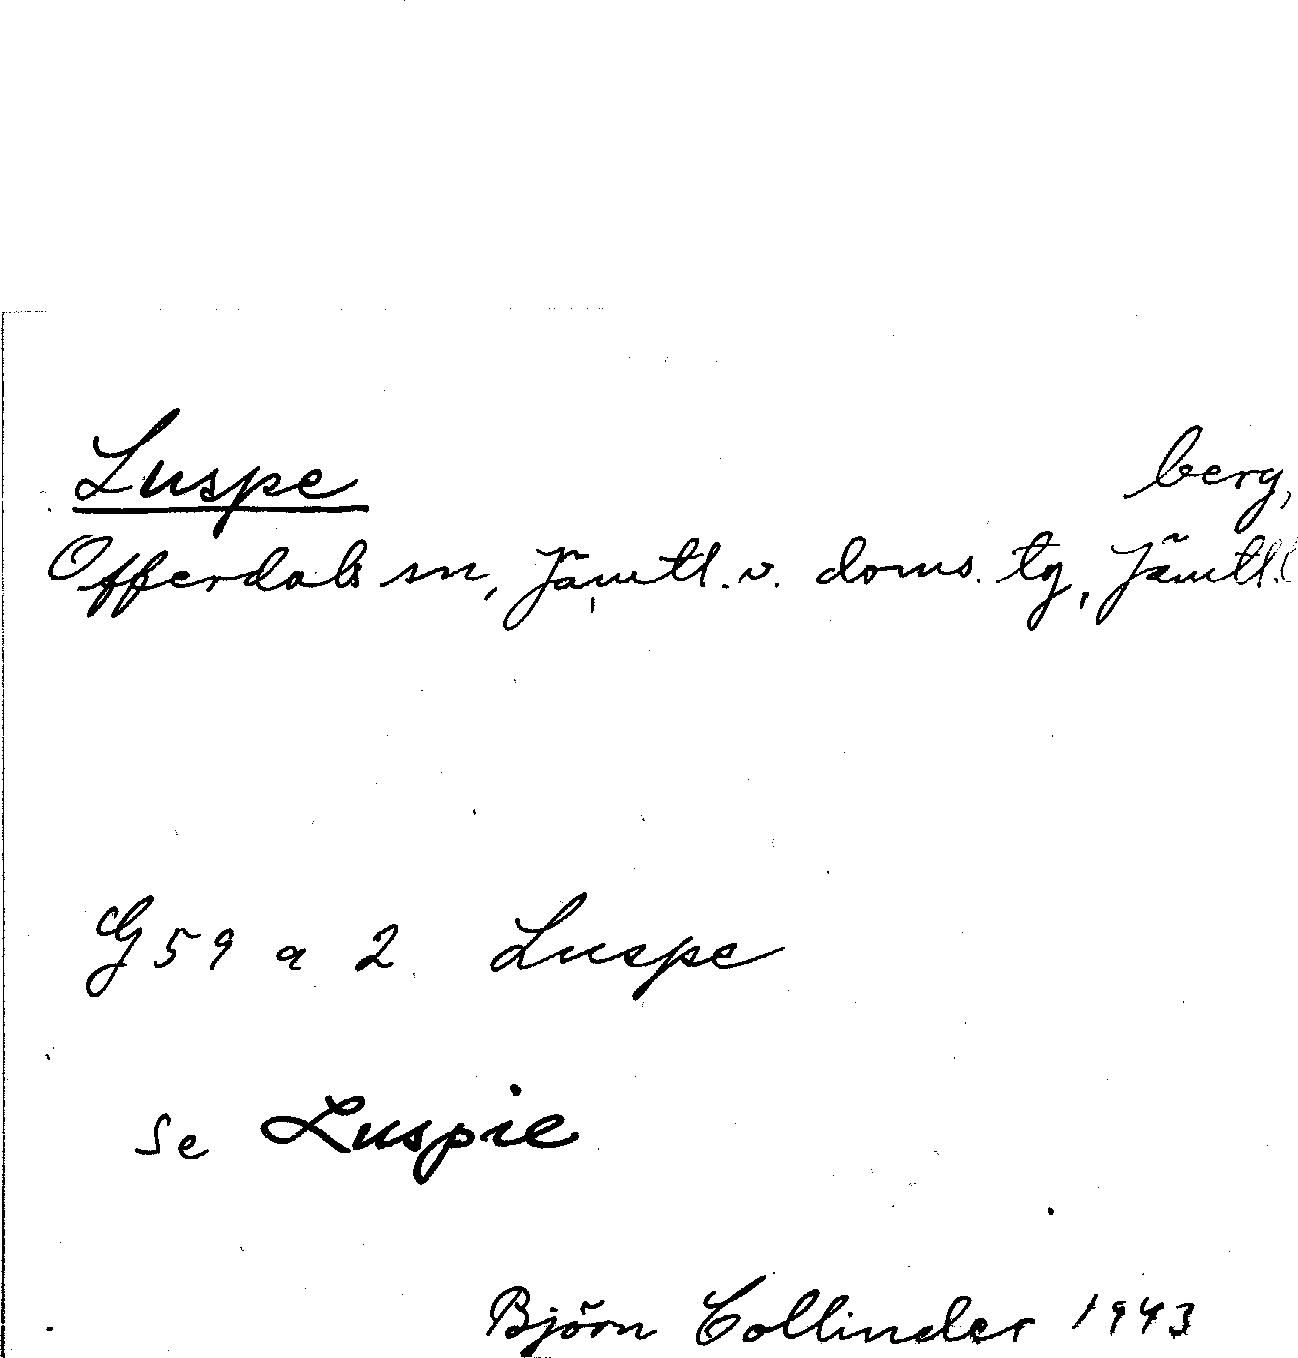 Luspe berg,
Offerdals sn, Jämtl. v. doms. tg, Jämtl. l
G 59 a 2 Luspe
Se Luspie
Björn Collinder 1943